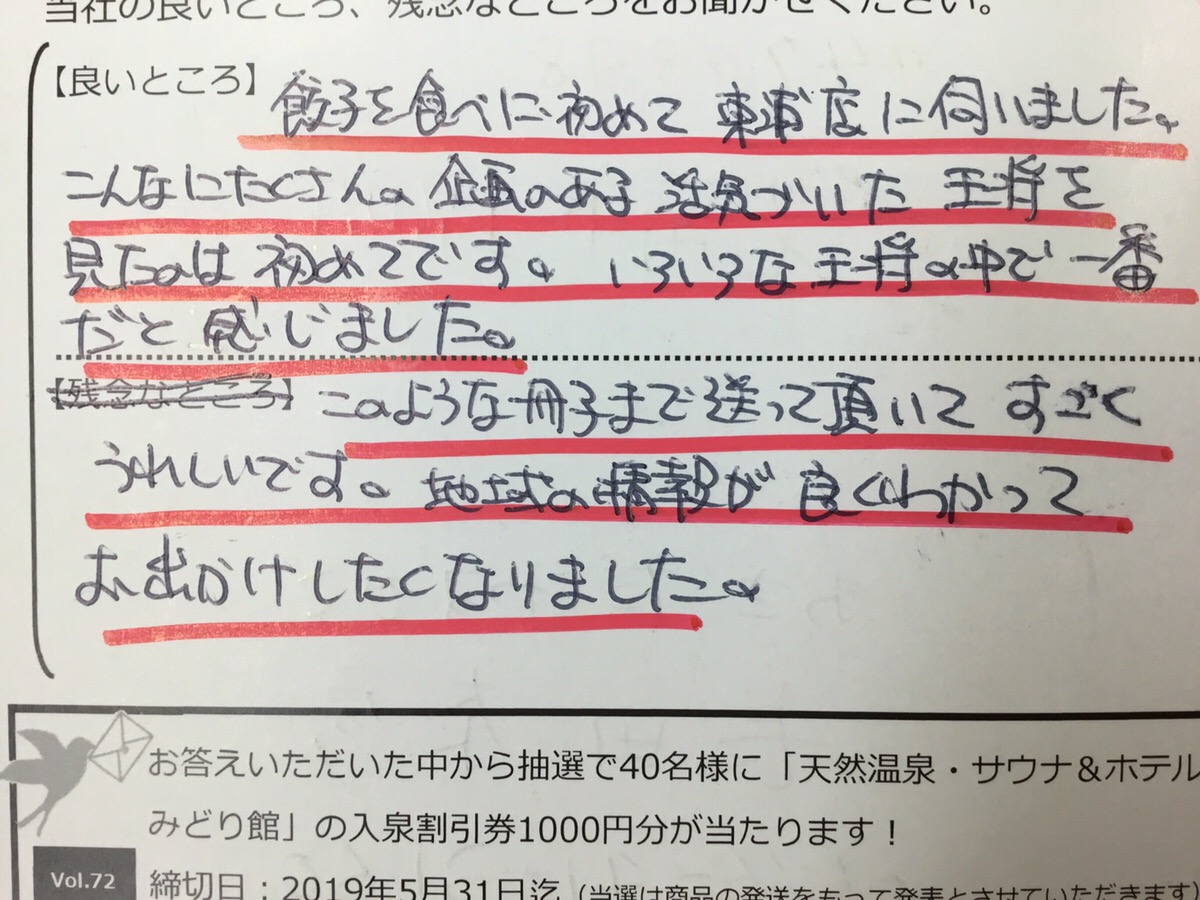 当社の良いところ、残念なところをお聞かせください。
【良いところ】 餃子を食べに初めて 東浦店に伺いました。
こんなにたくさんの 企画のある 活気づいた 王将を
見たのは 初めてです。 いろいろな王将の中で一番
だと 感じました。
【残念なところ】 このような冊子まで送って頂いて すごく
うれしいです。 地域の情報が 良くわかって
お出かけしたくなりました。
お答えいただいた中から抽選で40名様に「天然温泉・サウナ&ホテル
みどり館」の入泉割引券1000円分が当たります！
Vol.72
締切日：2019年5月31日迄（当選は商品の発送をもって発表とさせていただきます）